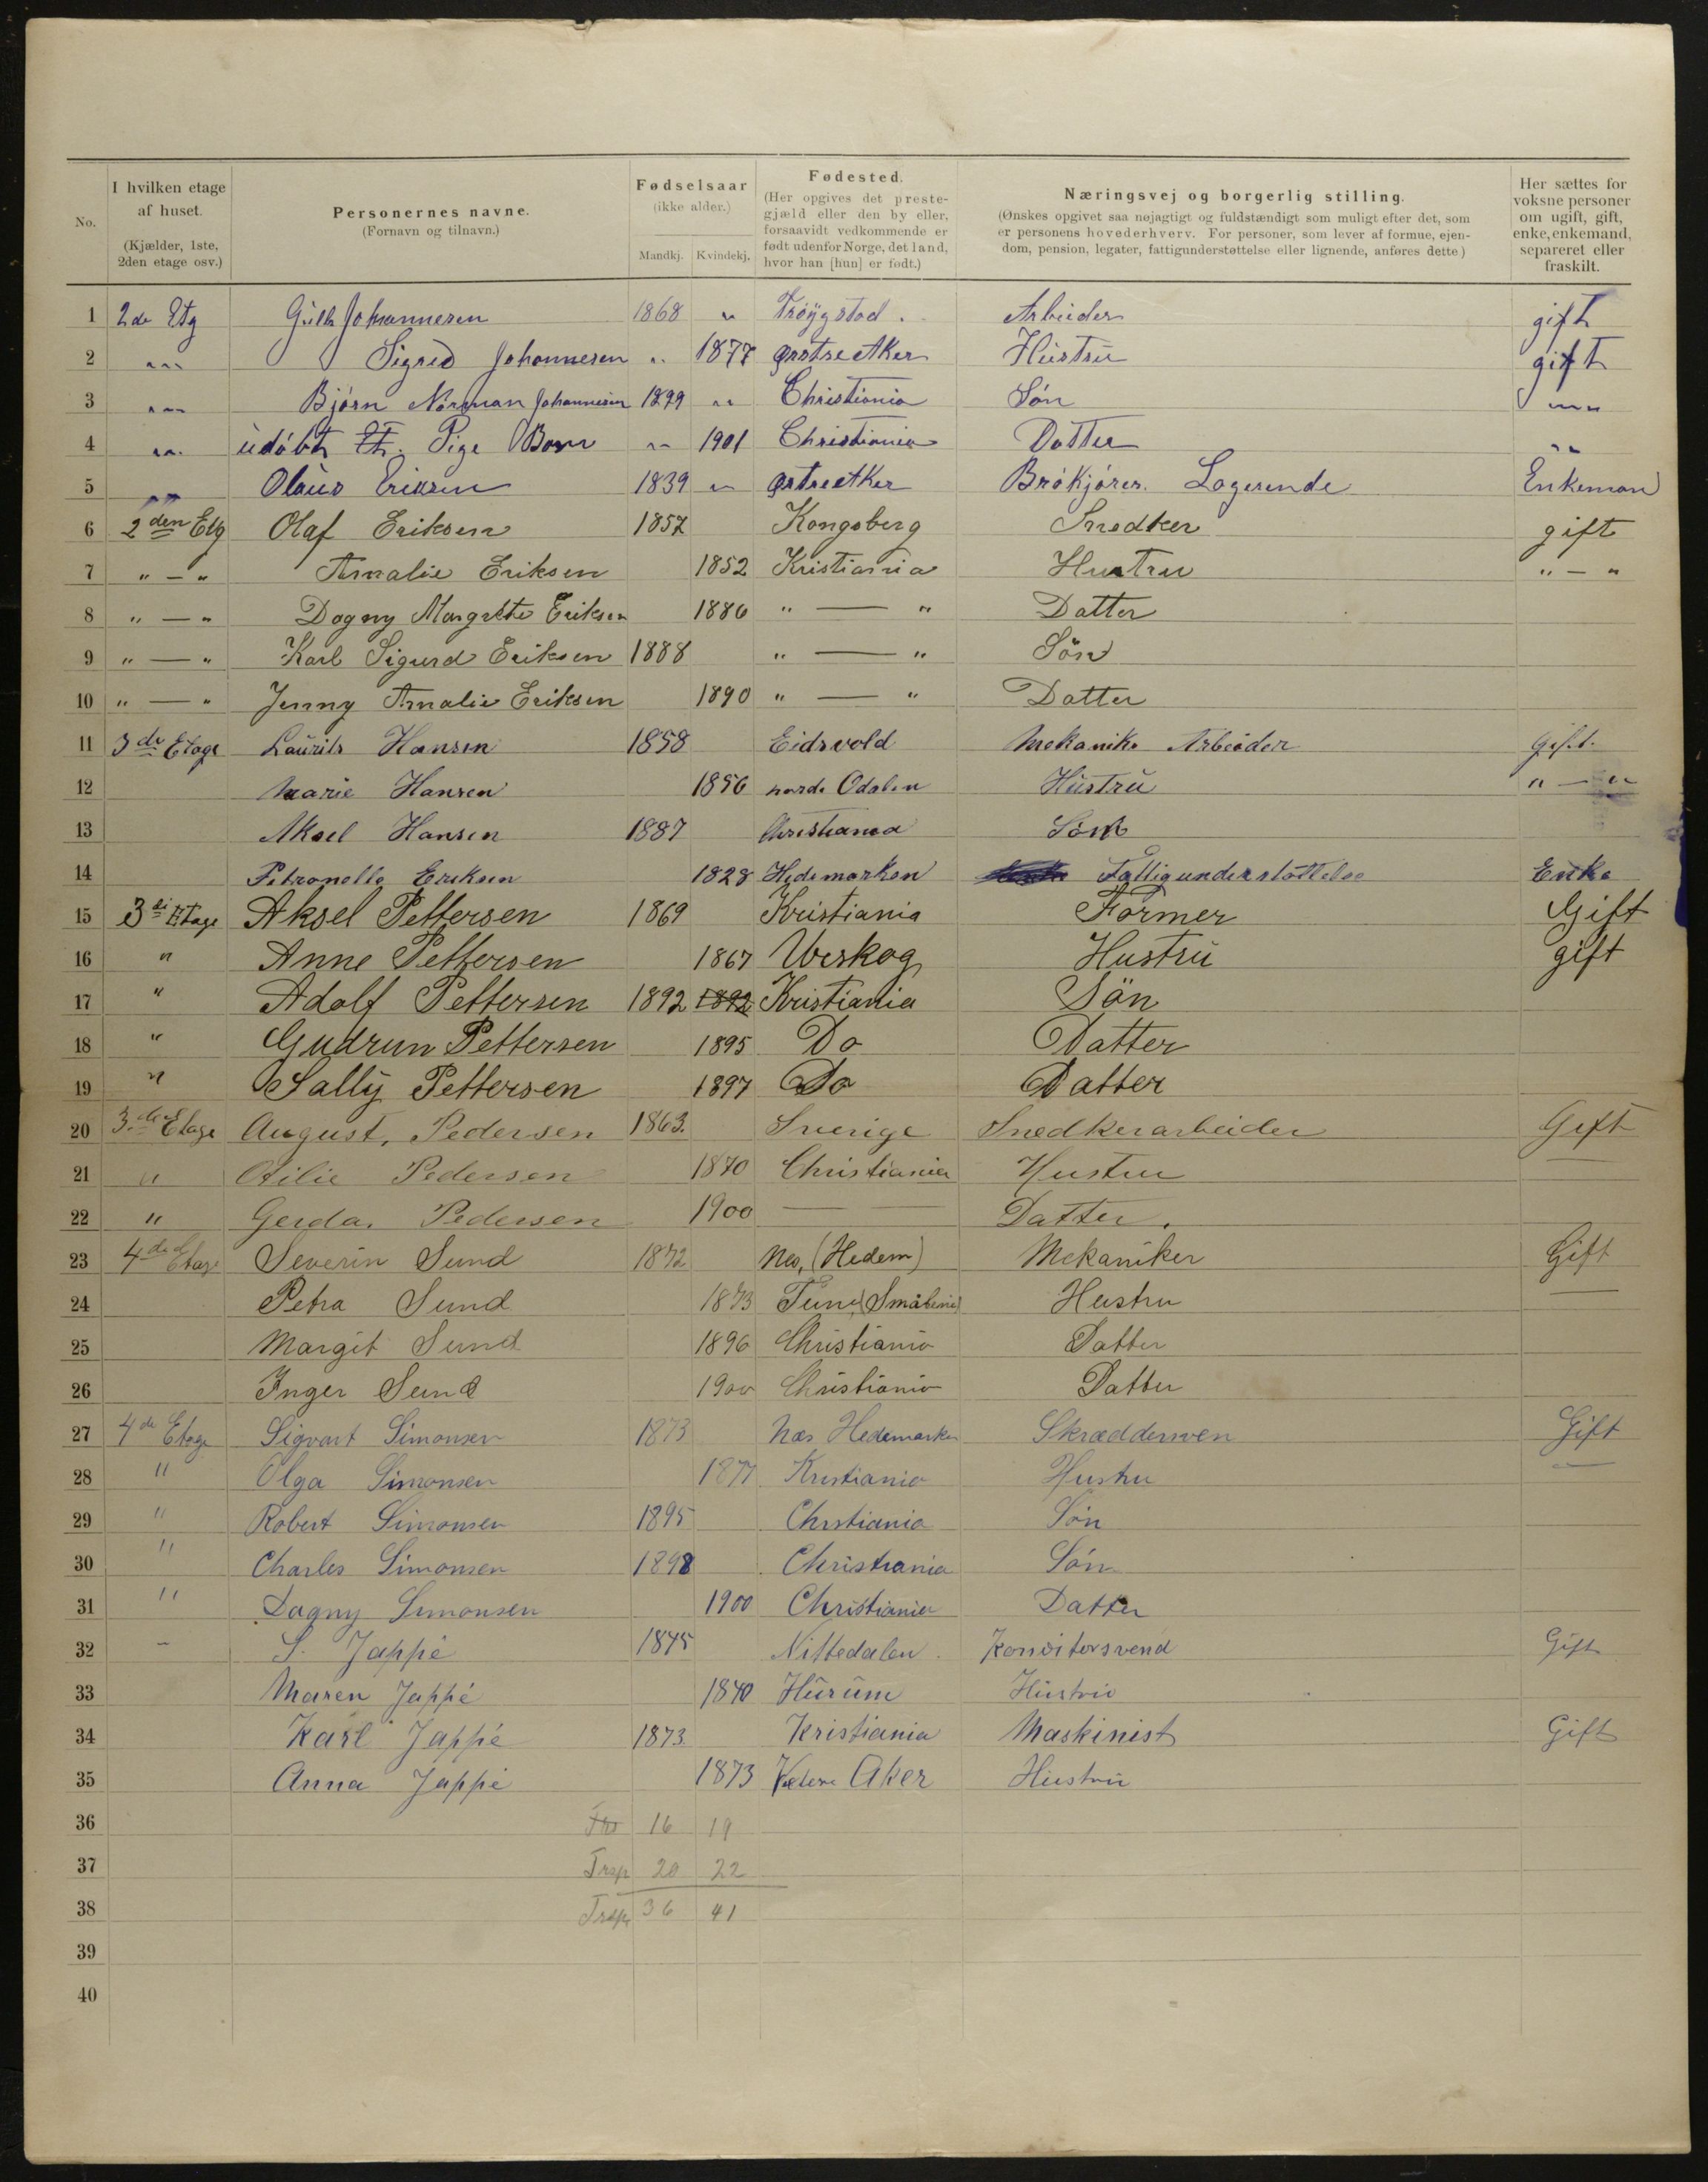 No.
I hvilken etage af huset.
(Kjælder, 1ste, 2den etage osv.)
Personernes navne.
(Fornavn og tilnavn.)
Fødselsaar
(ikke alder.)
Mandkj. Kvindekj.
Fødested.
(Her opgives det preste-
gjæld eller den by eller,
forsaavidt vedkommende er
født udenfor Norge, det land,
hvor han [hun] er født.)
Næringsvej og borgerlig stilling.
(Ønskes opgivet saa nøjagtigt og fuldstændigt som muligt efter det, som
er personens hovederhverv. For personer, som lever af formue, ejen-
dom, pension, legater, fattigunderstøttelse eller lignende, anføres dette)
Her sættes for
voksne personer
om ugift, gift,
enke, enkemand,
separeret eller
fraskilt.
1 2de Etg Johannesen 1868 " Trøygstad. Arbeider gift
2 " " Sigred Johannesen " 1877 Østre Aker Hustru gift
3 " " Bjørn Norman Johannesen 1899 " Christiania Søn " "
4 " " udøbt Pige Barn " 1901 Christiania Datter " "
5 " " Olaus Eriksen 1839 " Østre Aker Brøkjører. Logerende Enkeman
6 2den Etg Olaf Eriksen 1857 Kongsberg Snedker gift
7 " — " Amalie Eriksen 1852 Kristiania Hustru " — "
8 " — " Dagny Margrethe Eriksen 1886 " — " Datter
9 " — " Karl Sigurd Eriksen 1888 " — " Søn
10 " — " Jenny Amalie Eriksen 1890 " — " Datter
11 3de Etage Laurits Hansen 1858 Eidsvold Mekanike Arbeider Gift.
12 Marie Hansen 1856 nordr Odalen Hustru " — "
13 Aksel Hansen 1887 Christiania Søn
14 Petronelle Eriksen 1828 Hedemarken Fattigunderstøttelse Enke
15 3di Etage Aksel Pettersen 1869 Kristiania Former Gift
16 " Anne Pettersen 1867 Urskog Hustru gift
17 " Adolf Pettersen 1892 1892 Kristiania Sön
18 " Gudrun Pettersen 1895 Do Datter
19 " Sally Pettersen 1897 Do Datter
20 3.die Etage August, Pedersen 1863. Sverige Snedkerarbeider Gift
21 " Otilie Pedersen 1870 Christiania Hustru —
22 " Gerda. Pedersen 1900 — — Datter.
23 4de Etage Severin Sund 1872 Nes, (Hedem) Mekaniker Gift
24 Petra Sund 1873 Tune (Smålene) Hustru —
25 Margit Sund 1896 Christiania Datter
26 Inger Sund 1900 Christiania Datter
27 4de Etage Sigvart Simonsen 1873 Næs Hedemarken Skræddersven Gift
28 " Olga Simonsen 1877 Kristiania Hustru —
29 " Robert Simonsen 1895 Chrstiania Søn
30 " Charles Simonsen 1898 Christiania Søn
31 " Dagny Simonsen 1900 Christiania Datter
32 - S. Jappé 1845 Nittedalen. Konditorsvend Gift
33 Maren Jappé 1840 Hurum Hustru
34 Karl Jappé 1873 Kristiania Maskinist Gift
35 Anna Jappé 1873 Vestre Aker Hustru
36 16 19
37 Trsp 20 22
38 Trsp 36 41
39
40